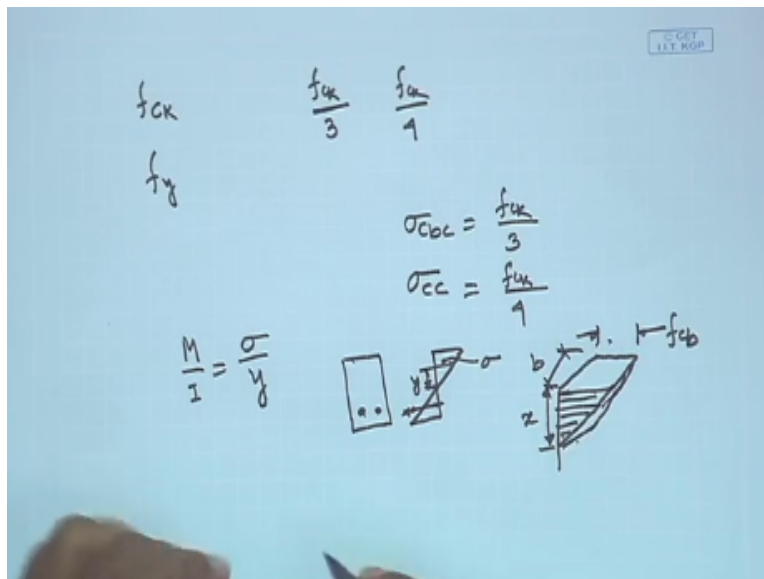 © CET
I.I.T. KGP
f_ck f_ck/3 f_ck/4
f_y
σ_cbc = f_ck/3
σ_cc = f_ck/4
M/I = σ/y
y σ
b f_cb
x